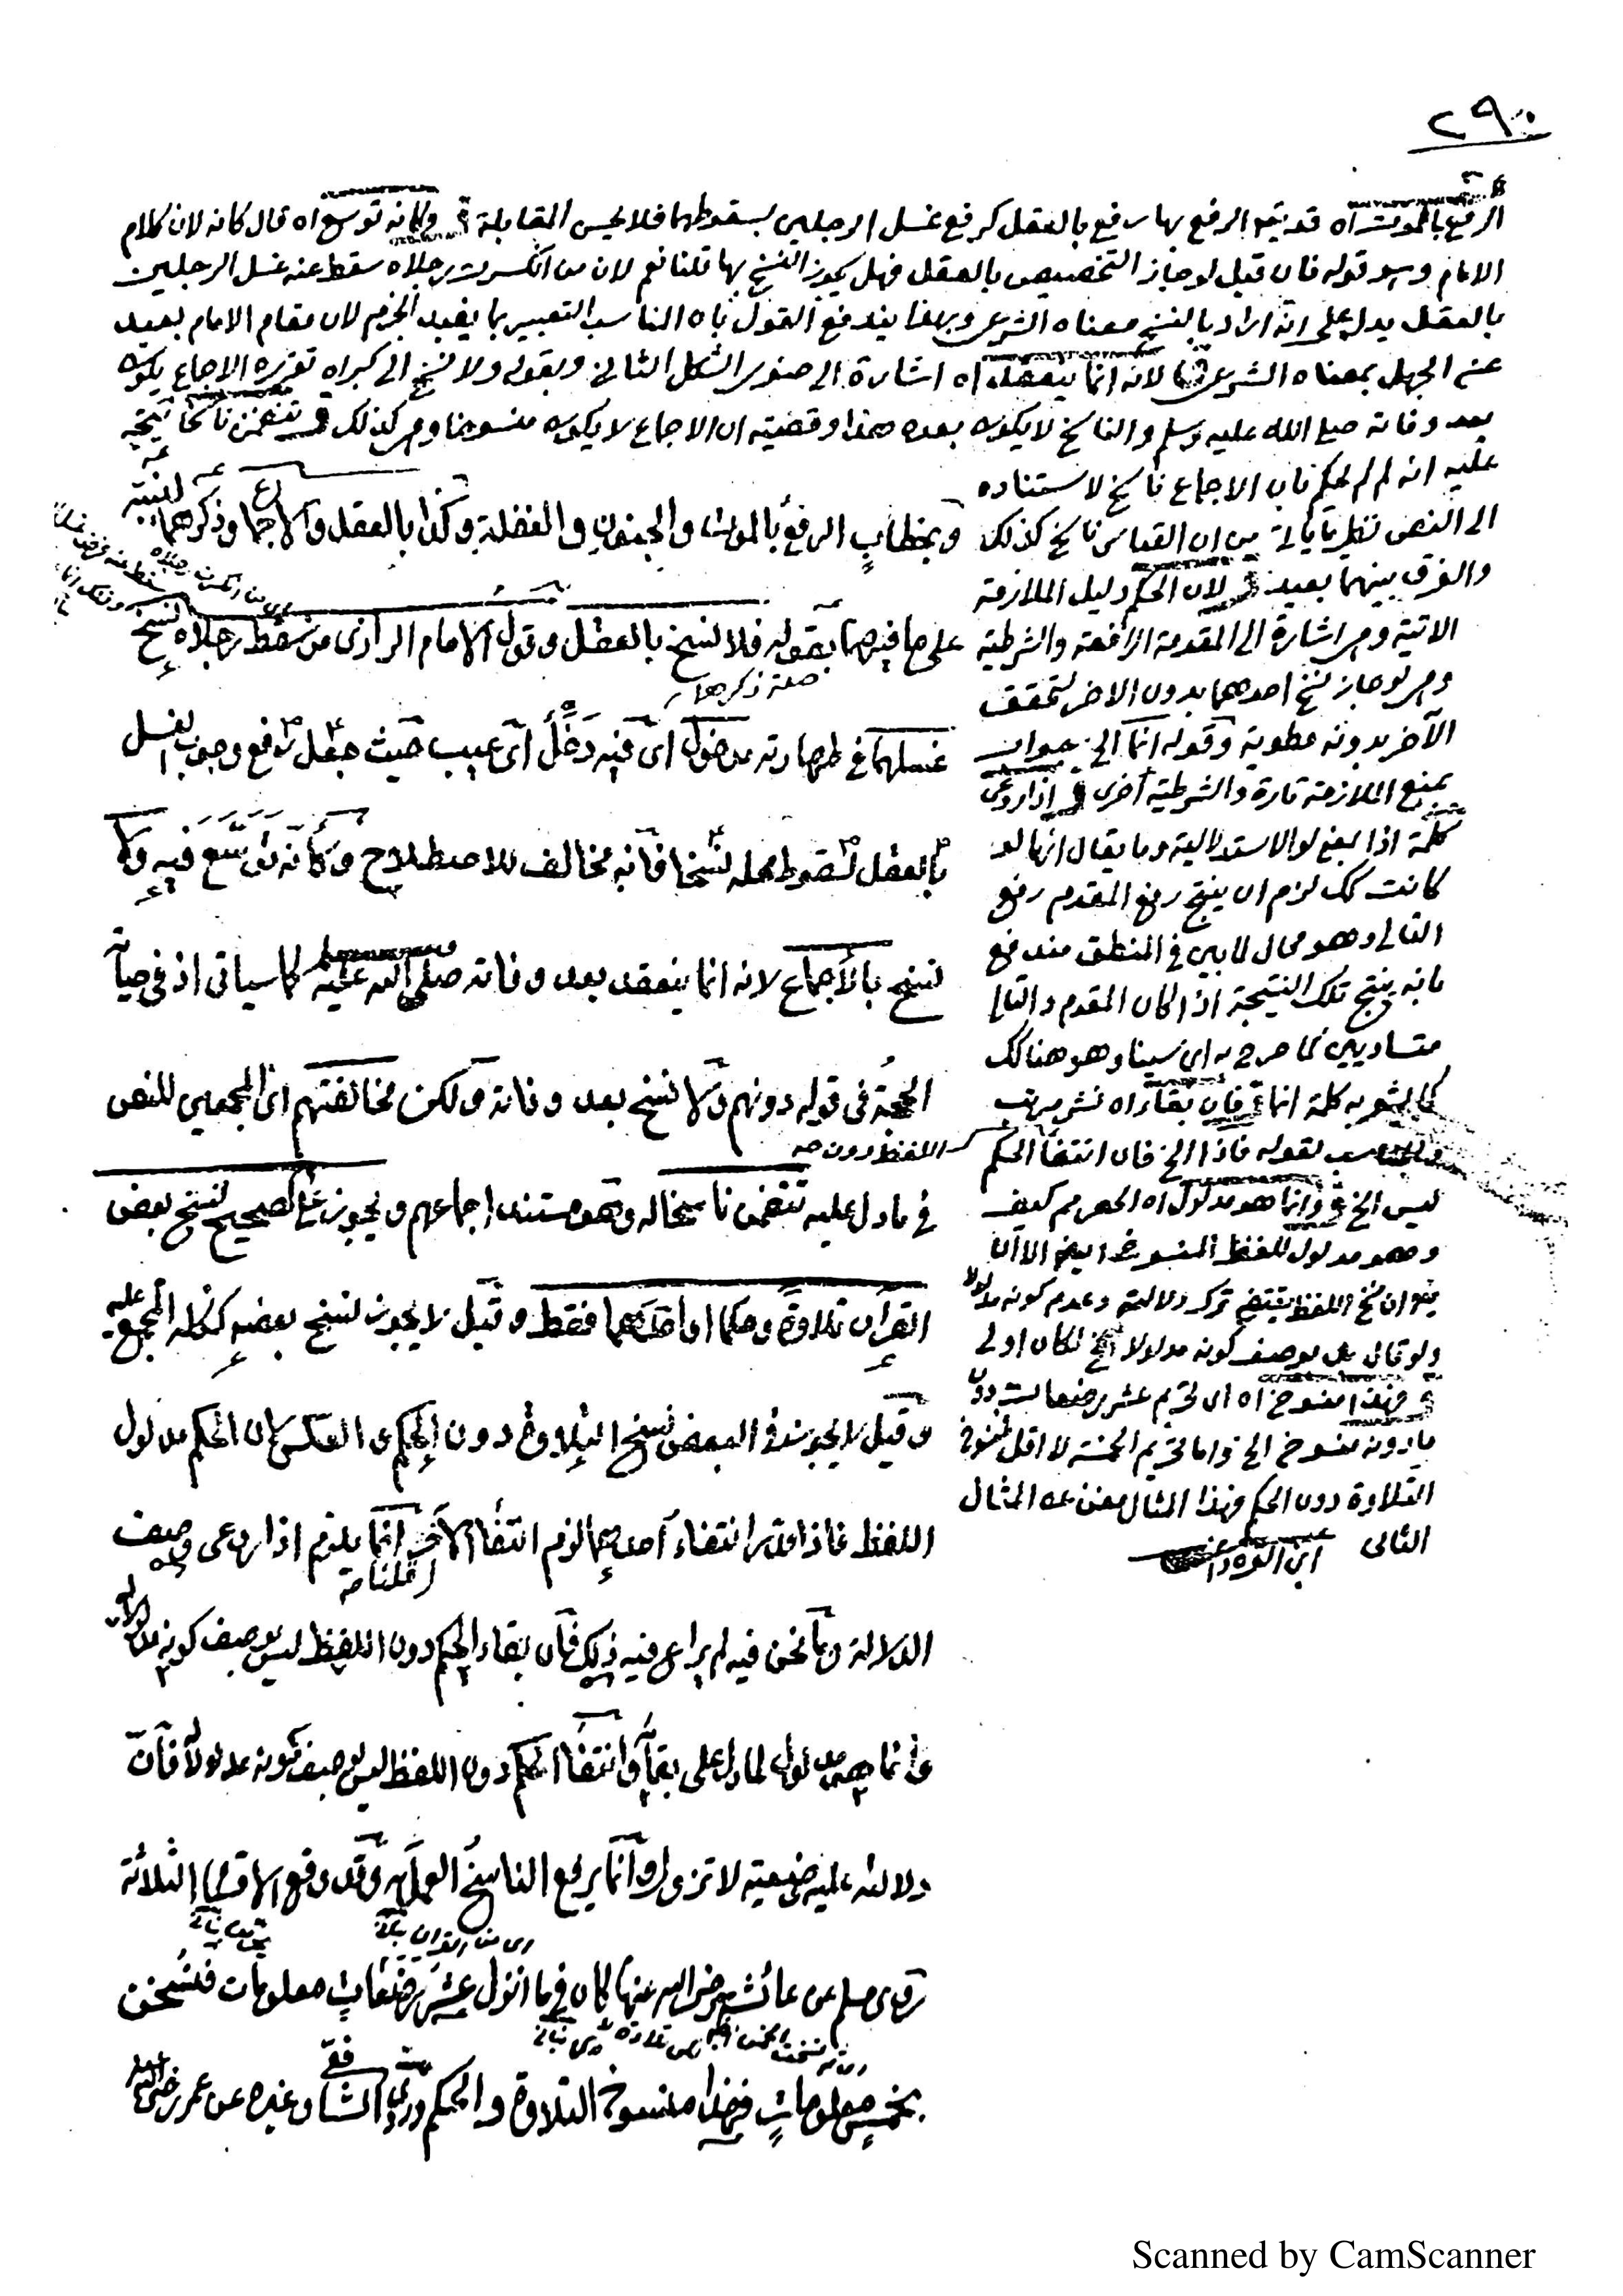 ٢٩٠
الرفع بالموت اه قد يتو الرفع بها رفع بالعقل كرفع غسل الرجلين بسقوطهما فلا يحسن المقابلة وكانه توسع اه قال كانه لان كلام
الامام وهو قوله فان قيل لو جاز التخصيص بالعقل فهل يجوز النسخ بها قلنا نعم لان من انكسرت رجلاه سقط عنه غسل الرجلين
بالعقل يدل على انه اراد بالنسخ معناه الشرعي وبهذا يندفع القول بان المناسب التعبير بما يفيد الجزم لان مقام الامام بعيد
عن الجهل بمعناه الشرعي لانه انما ينعقد اه اشارة الى صغرى الشكل الثاني وبقوله ولا نسخ الى كبراه تقريره الاجماع يكون
بعد وفاته صلى الله عليه وسلم والناسخ لا يكون بعده هذا وقضيته ان الاجماع لا يكون منسوخا وهو كذلك تتضمن ناسخا يتجه
عليه انه لم لم يحكم بان الاجماع ناسخ لاستناده
الى النص نظير ما ياتي من ان القياس ناسخ كذلك
والفرق بينهما بعيد لان الحكم دليل الملازمة
الاتية وهي اشارة الى المقدمة الرافعة والشرطية
وهي لو جاز نسخ احدهما بدون الاخر لتحقق
الآخر بدونه مطوية وقوله انما الخ جواب
بمنع الملازمة تارة والشرطية أخرى اذا روعي
كلمة اذا بمعنى لو الاستدلالية وما يقال انها لو
كانت كك لزم ان ينتج رفع المقدم رفع
التالي وهو محال لما بين في المنطق مندفع
بانه ينتج تلك النتيجة اذا كان المقدم والتالي
متساويين كما صرح به ابن سينا وهو هنا كك
كما يشعر به كلمة انما فان بقاء اه نشر مرتب
والمناسب لقوله فاذا الخ فان انتفاء الحكم
ليس الخ وانما هو مدلول اه الحصر م كيف
وهو مدلول للفظ المنسوخ ايضا الا ان
يتو ان نسخ اللفظ يقتضي ترك دلالته وعدم كونه مدلولا
ولو قال بل بوصف كونه مدلولا الخ لكان اولى
فهذا منسوخ اه اى تحريم عشر رضعات دون
مادونه منسوخ الخ واما تحريم الخمسة لا اقل فمنسوخ
التلاوة دون الحكم فهذا المثال مغن عن المثال
الثانى ابن القره داغي
وبخطاب الرفع بالموت والجنون والغفلة وكذا بالعقل والاجماع وذكرهما لينبه
على ما فيهما بقوله فلا نسخ بالعقل وقول الامام الرازى من سقط رجلاه نسخ
صلة ذكرهما
غسلهما في طهارته مدخول اى فيه دخل اى عيب حيث جعل رفع وجوب الغسل
بالعقل لسقوط محله نسخا فانه مخالف للاصطلاح وكأنه توسع فيه ولا
نسخ بالاجماع لانه انما ينعقد بعد وفاته صلى الله عليه وسلم كما سياتى اذ في حياته
الحجة في قوله دونهم ولا نسخ بعد وفاته ولكن مخالفتهم اى المجمعين للنص
اللفظ دون
في مادل عليه تتضمن ناسخا له وهو مستند اجماعهم ويجوز على الصحيح نسخ بعض
القرآن تلاوة وحكما او احدهما فقط وقيل لا يجوز نسخ بعضه ككله المجمع عليه
وقيل لا يجوز في البعض نسخ التلاوة دون الحكم والعكس لان الحكم مدلول
اللفظ فاذا قدر انتفاء احدهما لزم انتفاء الاخر انما يلزم اذا روعى وصف
قلنا
الدلالة وما نحن فيه لم يراع فيه ذلك فان بقاء الحكم دون اللفظ ليس بوصف كونه مدلولا
وانما هو مدلول لما دل على بقائه وانتفاء الحكم دون اللفظ ليس بوصف كونه مدلولا فان
دلالته عليه وضعية لا تزول وانما يرفع الناسخ العمل به وقد وقع الاقسام الثلاثة
روى مسلم عن عائشة رضى الله عنها كان فيما انزل عشر رضعات معلومات فنسخن
بخمس معلومات فهذا منسوخ التلاوة والحكم وروى الشافعي وغيره عن عمر رضى الله عنه
Scanned by CamScanner